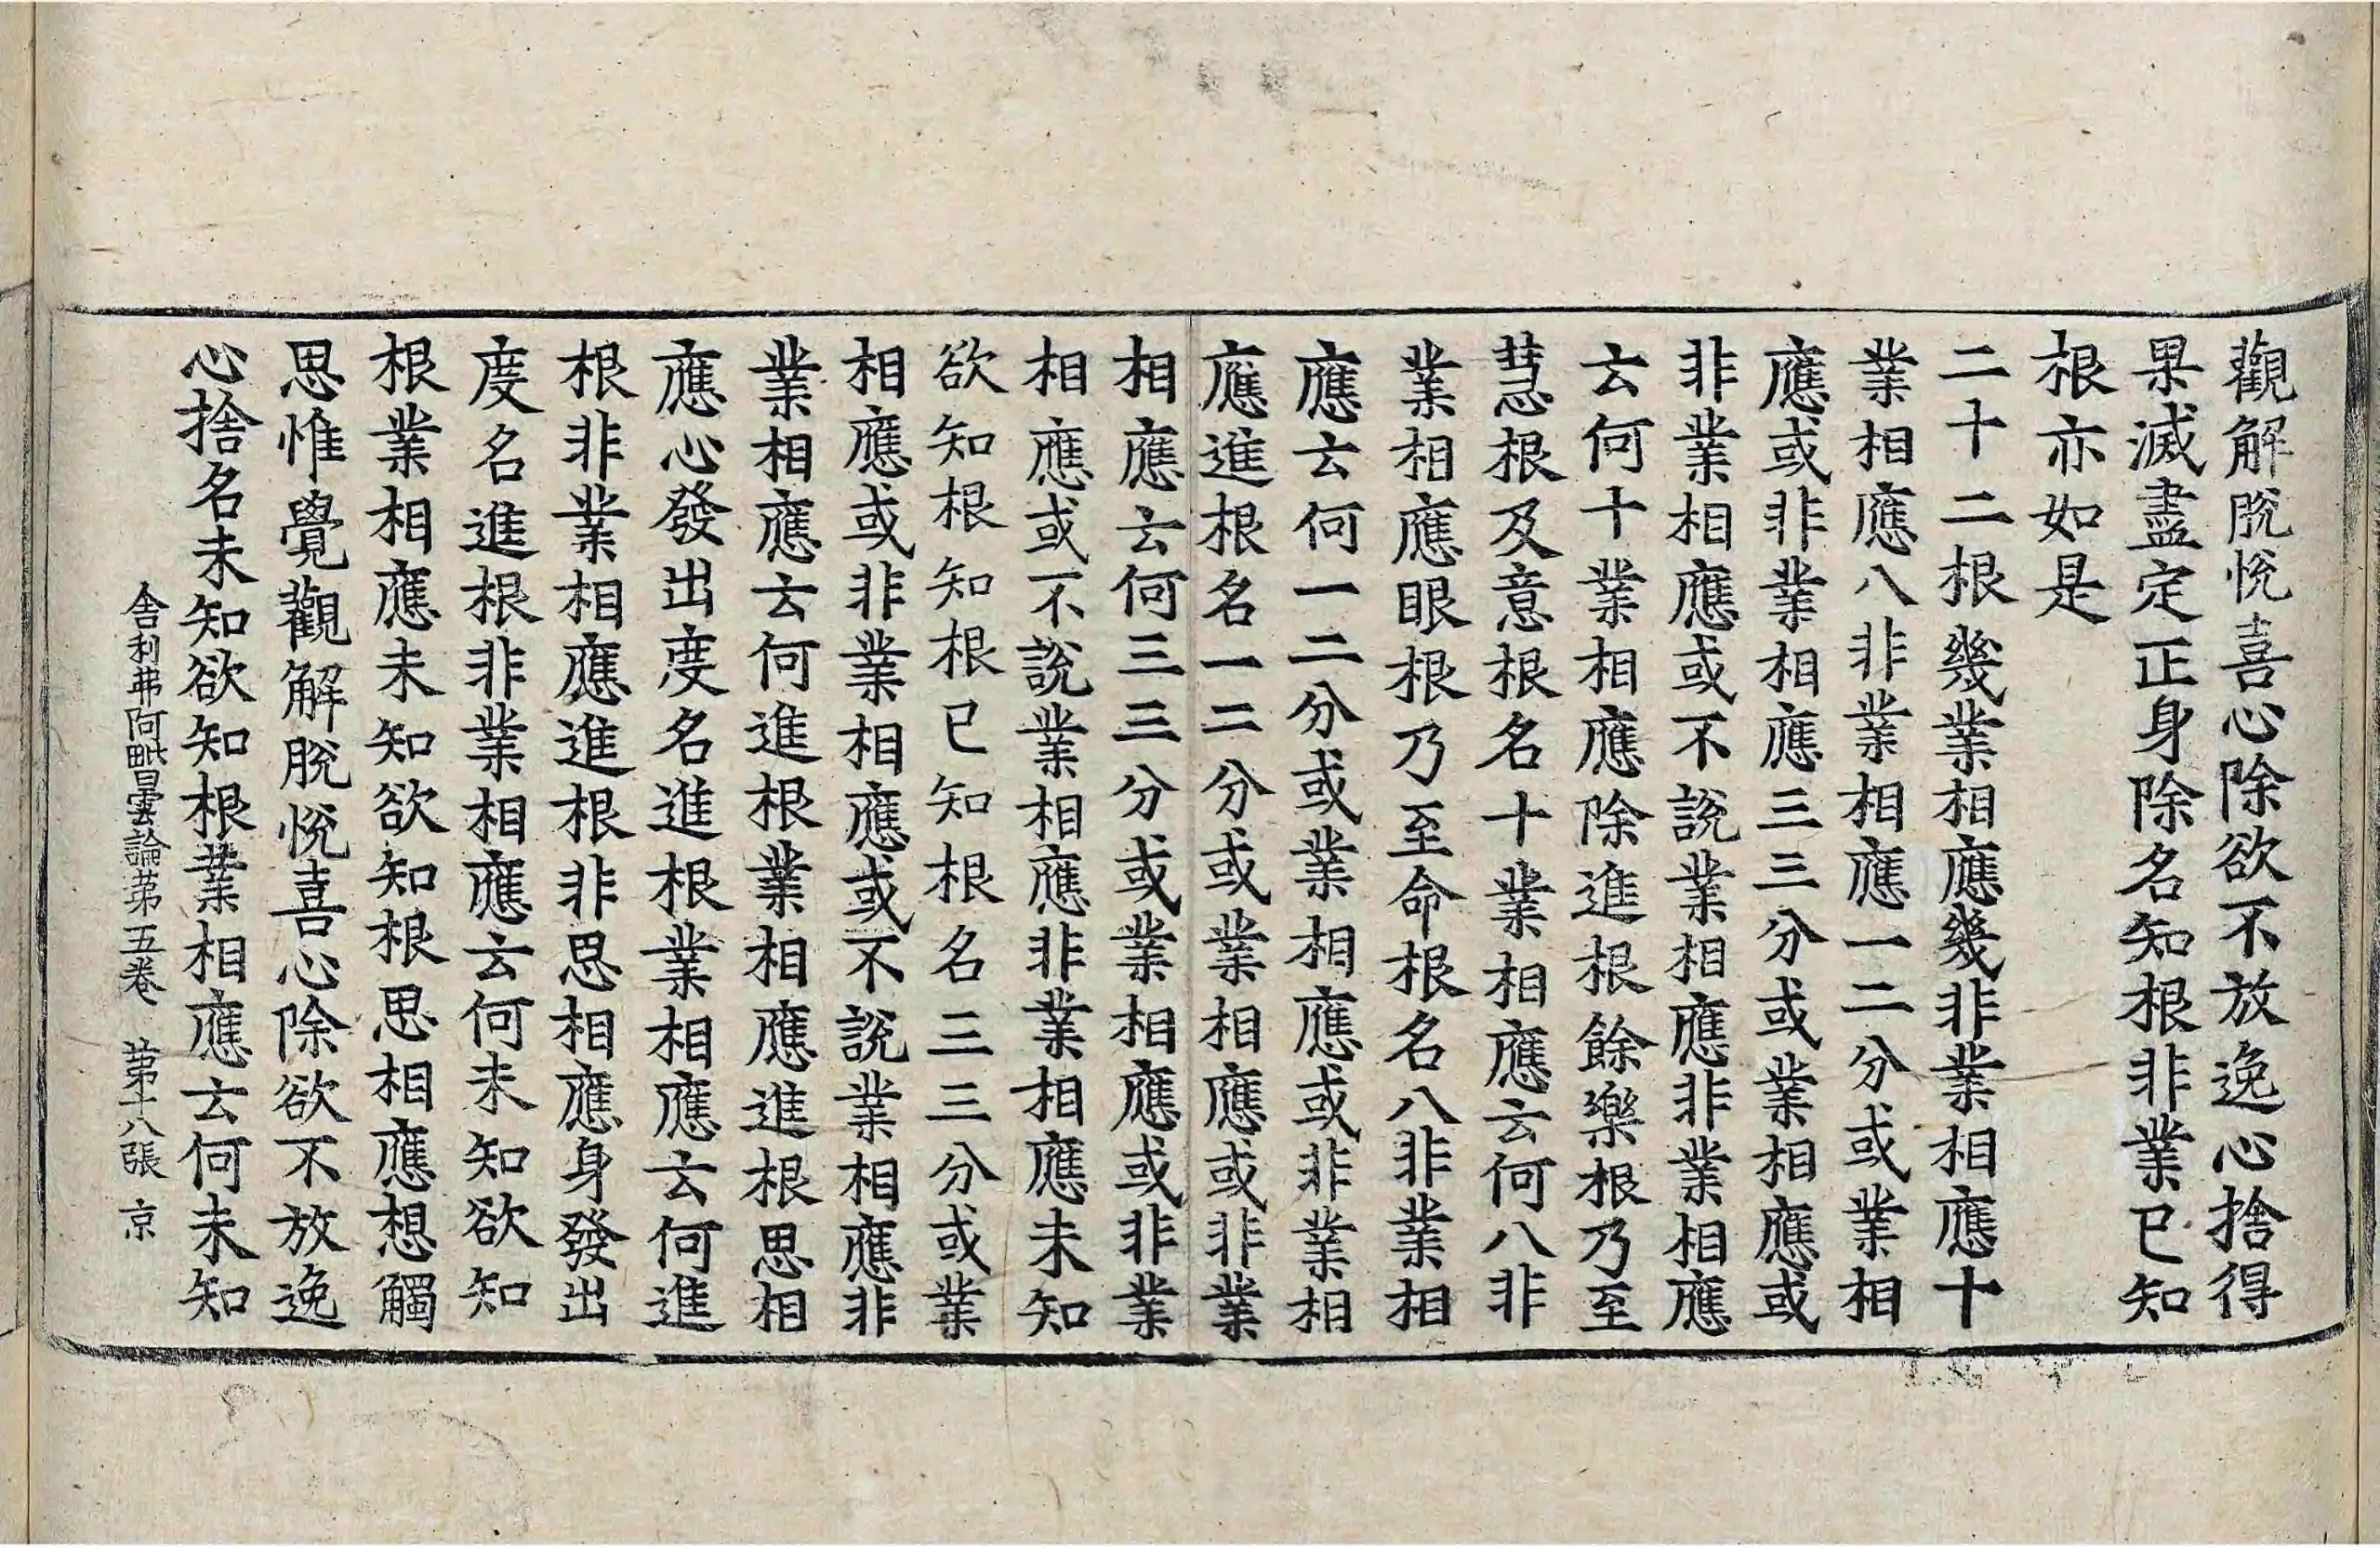 觀解脫悅喜心除欲不放逸心捨得
果滅盡定正身除名知根非業已知
根亦如是
二十二根幾業相應幾非業相應十
業相應八非業相應一二分或業相
應或非業相應三三分或業相應或
非業相應或不說業相應非業相應
云何十業相應除進根餘樂根乃至
慧根及意根名十業相應云何八非
業相應眼根乃至命根名八非業相
應云何一二分或業相應或非業相
應進根名一二分或業相應或非業
相應云何三三分或業相應或非業
相應或不說業相應非業相應未知
欲知根知根已知根名三三分或業
相應或非業相應或不說業相應非
業相應云何進根業相應進根思相
應心發出度名進根業相應云何進
根非業相應進根非思相應身發出
度名進根非業相應云何未知欲知
根業相應未知欲知根思相應想觸
思惟覺觀解脫悅喜心除欲不放逸
心捨名未知欲知根業相應云何未知
舍利弗阿毗曇論第五卷 第十八張 京